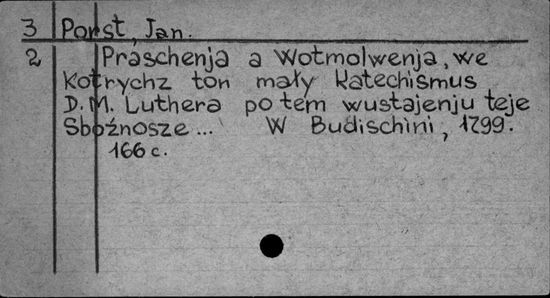 3 Porst, Jan.
2 Praschenja a Wotmolwenja, we
Kotrychz ton mały Katechismus
D. M. Luthera po tem wustajenju teje
Sbožnosze... W Budischini, 1799.
166 c.